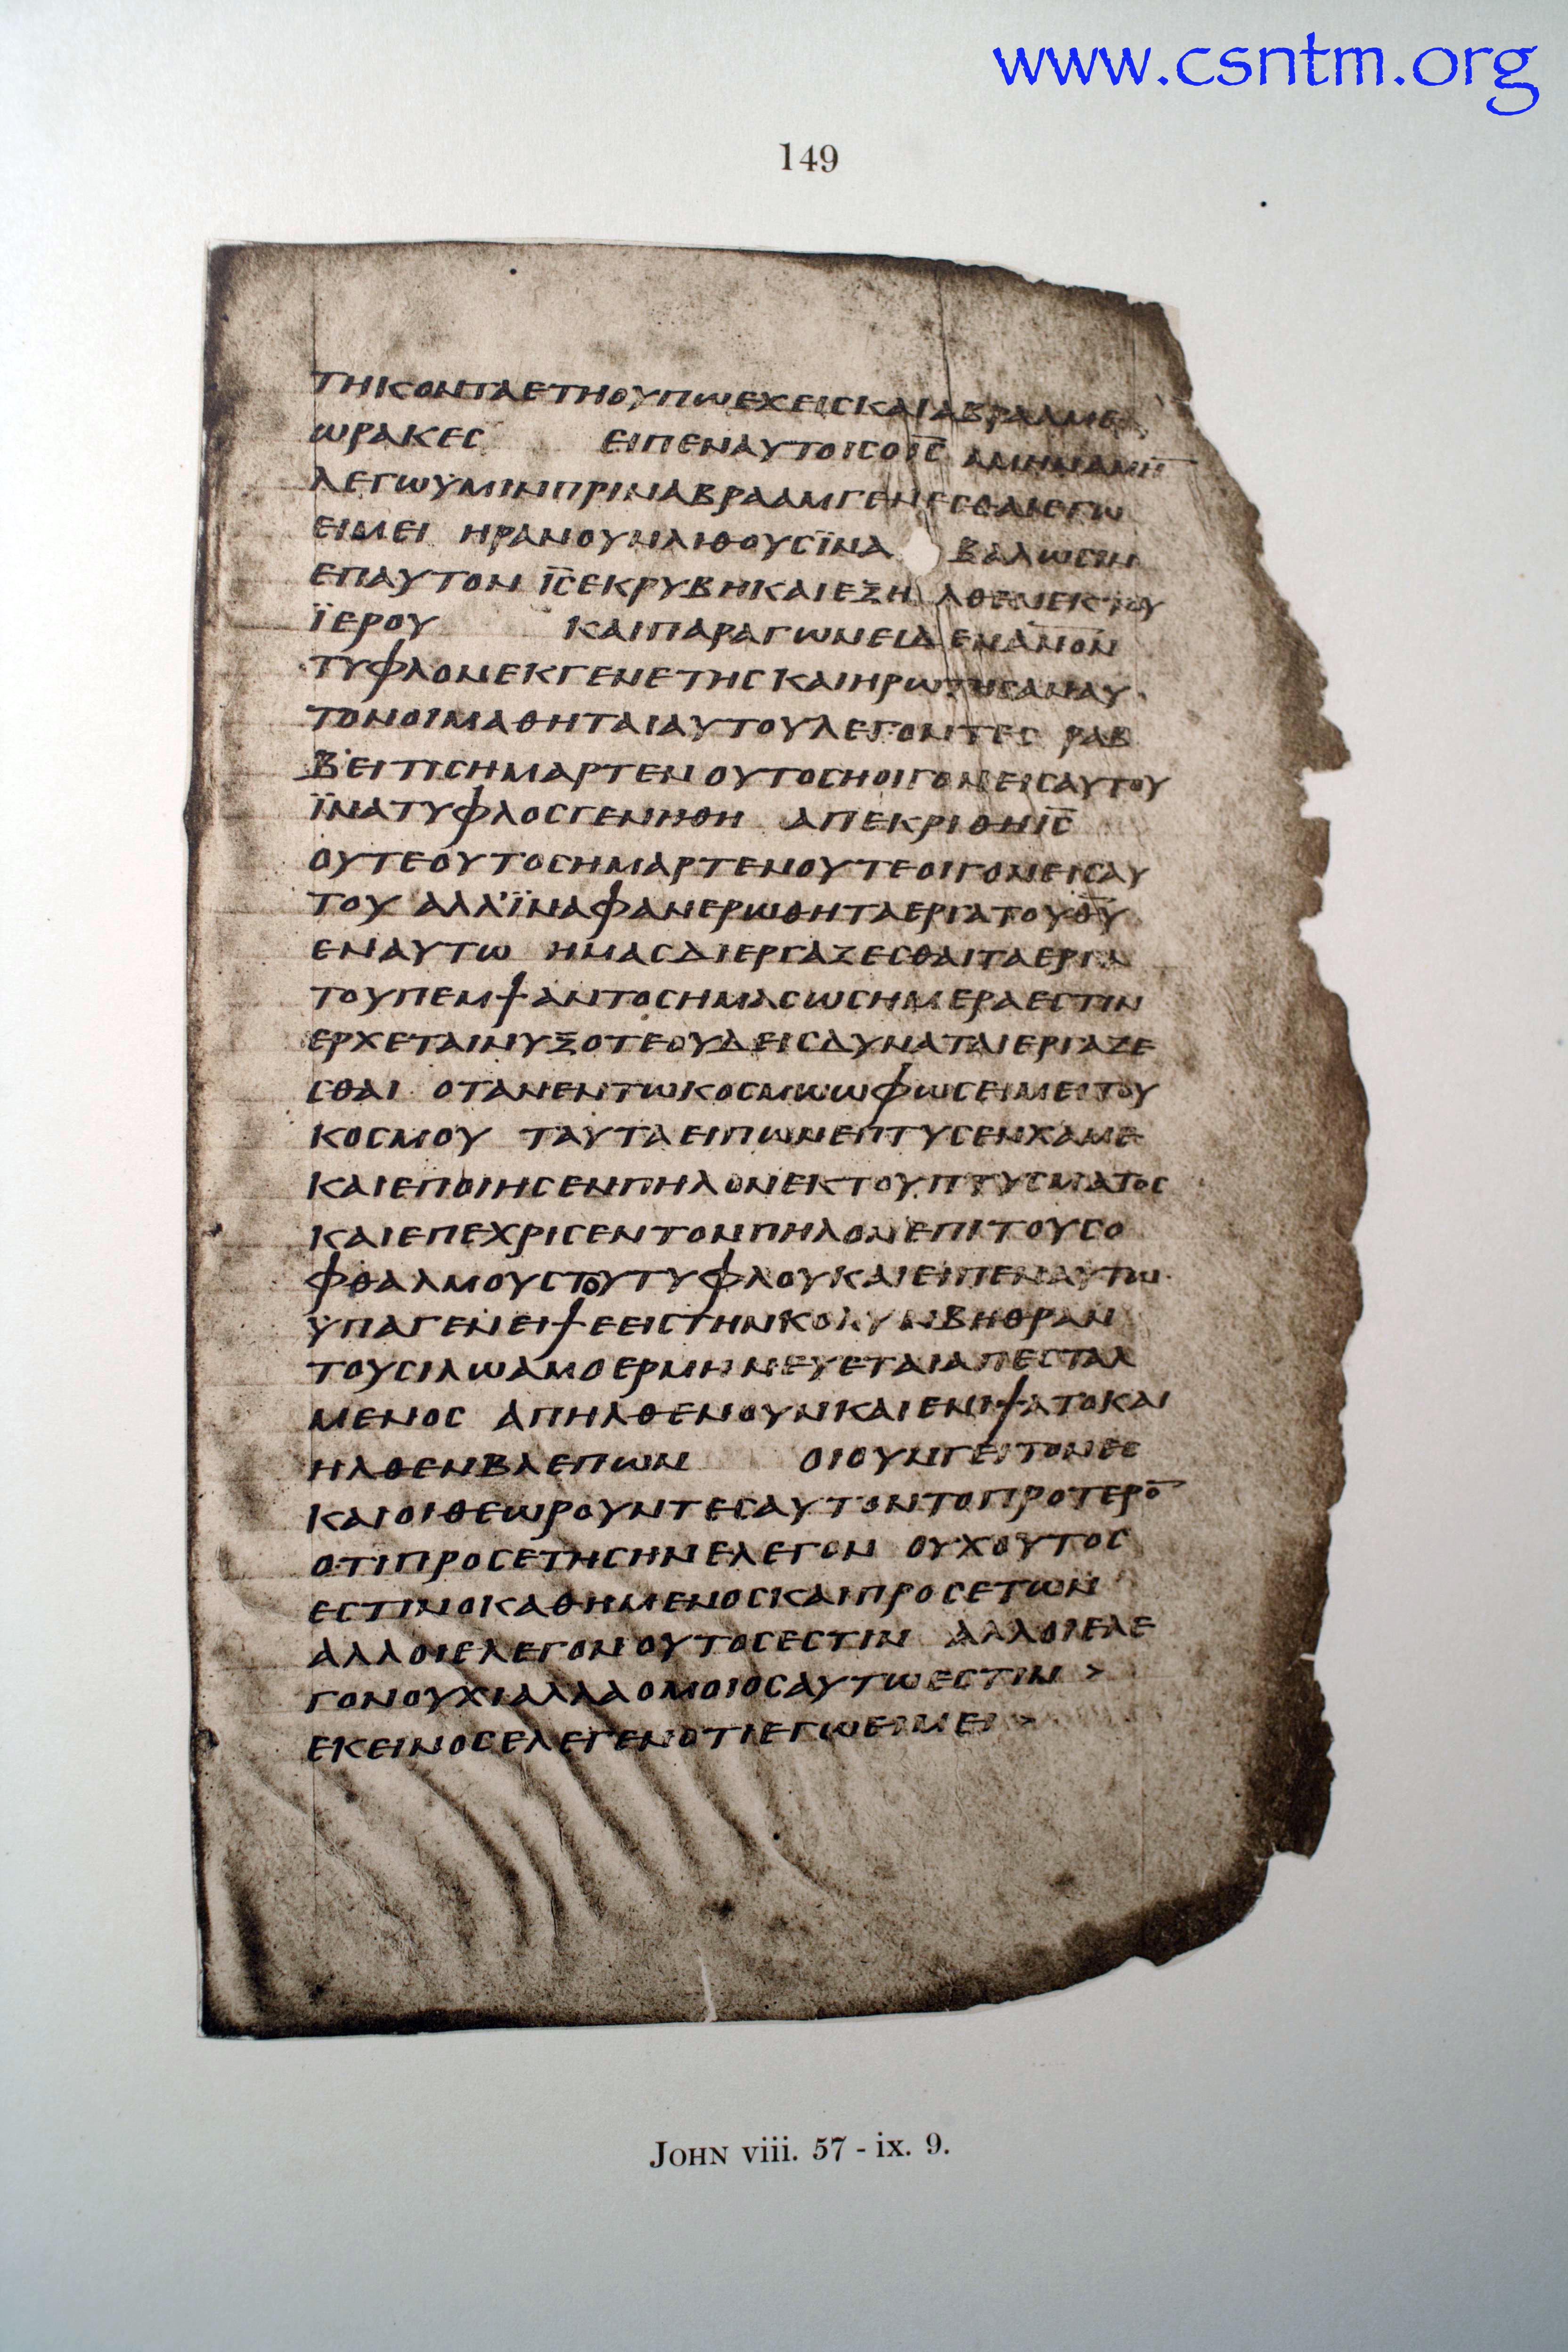 www.csntm.org
149
ΤΗΚΟΝΤΑΕΤΗΟΥΠΩΕΧΕΙϹΚΑΙΑΒΡΑΑΜΕ
ΩΡΑΚΕϹ ΕΙΠΕΝΑΥΤΟΙϹΟΙ̅Ϲ̅ ΑΜΗΝΑΜΗ̅
ΛΕΓΩΥΜΙΝΠΡΙΝΑΒΡΑΑΜΓΕΝΕϹΘΑΙΕΓΩ
ΕΙΜΕΙ ΗΡΑΝΟΥΝΛΙΘΟΥϹΪΝΑ ΒΑΛΩϹΙΝ
ΕΠΑΥΤΟΝ Ι̅Ϲ̅ΕΚΡΥΒΗΚΑΙΕΞΗΛΘΕΝΕΚΤΟΥ
ΪΕΡΟΥ ΚΑΙΠΑΡΑΓΩΝΕΙΔΕΝΑ̅Ν̅Ο̅Ν̅
ΤΥΦΛΟΝΕΚΓΕΝΕΤΗϹΚΑΙΗΡΩΤΗϹΑΝΑΥ
ΤΟΝΟΙΜΑΘΗΤΑΙΑΥΤΟΥΛΕΓΟΝΤΕϹ ΡΑΒ
ΒΕΙΤΙϹΗΜΑΡΤΕΝ ΟΥΤΟϹΗΟΙΓΟΝΕΙϹΑΥΤΟΥ
ΪΝΑΤΥΦΛΟϹΓΕΝΗΘΗ ΑΠΕΚΡΙΘΗΙ̅Ϲ̅
ΟΥΤΕΟΥΤΟϹΗΜΑΡΤΕΝΟΥΤΕΟΙΓΟΝΕΙϹΑΥ
ΤΟΥ ΑΛΛ'ΪΝΑΦΑΝΕΡΩΘΗΤΑΕΡΓΑΤΟΥΘ̅Υ̅
ΕΝΑΥΤΩ ΗΜΑϹΔΙΕΡΓΑΖΕϹΘΑΙΤΑΕΡΓΑ
ΤΟΥΠΕΜΨΑΝΤΟϹΗΜΑϹΩϹΗΜΕΡΑΕϹΤΙΝ
ΕΡΧΕΤΑΙΝΥΞΟΤΕΟΥΔΕΙϹΔΥΝΑΤΑΙΕΡΓΑΖΕ
ϹΘΑΙ ΟΤΑΝΕΝΤΩΚΟϹΜΩΩΦΩϹΕΙΜΕΙΤΟΥ
ΚΟϹΜΟΥ ΤΑΥΤΑΕΙΠΩΝΕΠΤΥϹΕΝΧΑΜΕ
ΚΑΙΕΠΟΙΗϹΕΝΠΗΛΟΝΕΚΤΟΥΠΤΥϹΜΑΤΟϹ
ΚΑΙΕΠΕΧΡΙϹΕΝΤΟΝΠΗΛΟΝΕΠΙΤΟΥϹΟ
ΦΘΑΛΜΟΥϹΤΟΥΤΥΦΛΟΥΚΑΙΕΙΠΕΝΑΥΤΩ
ΥΠΑΓΕΝΕΙΨΕΕΙϹΤΗΝΚΟΛΥΝΒΗΘΡΑΝ
ΤΟΥϹΙΛΩΑΜΟΕΡΜΗΝΕΥΕΤΑΙΑΠΕϹΤΑΛ
ΜΕΝΟϹ ΑΠΗΛΘΕΝΟΥΝΚΑΙΕΝΙΨΑΤΟΚΑΙ
ΗΛΘΕΝΒΛΕΠΩΝ ΟΙΟΥΝΓΕΙΤΟΝΕϹ
ΚΑΙΟΙΘΕΩΡΟΥΝΤΕϹΑΥΤΟΝΤΟΠΡΟΤΕΡΟ̅
ΟΤΙΠΡΟϹΕΤΗϹΗΝΕΛΕΓΟΝ ΟΥΧΟΥΤΟϹ
ΕϹΤΙΝΟΚΑΘΗΜΕΝΟϹΚΑΙΠΡΟϹΕΤΩΝ
ΑΛΛΟΙΕΛΕΓΟΝΟΥΤΟϹΕϹΤΙΝ ΑΛΛΟΙΕΛΕ
ΓΟΝΟΥΧΙΑΛΛΑΟΜΟΙΟϹΑΥΤΩΕϹΤΙΝ >
ΕΚΕΙΝΟϹΕΛΕΓΕΝΟΤΙΕΓΩΕΙΜΕΙ >
JOHN viii. 57 - ix. 9.